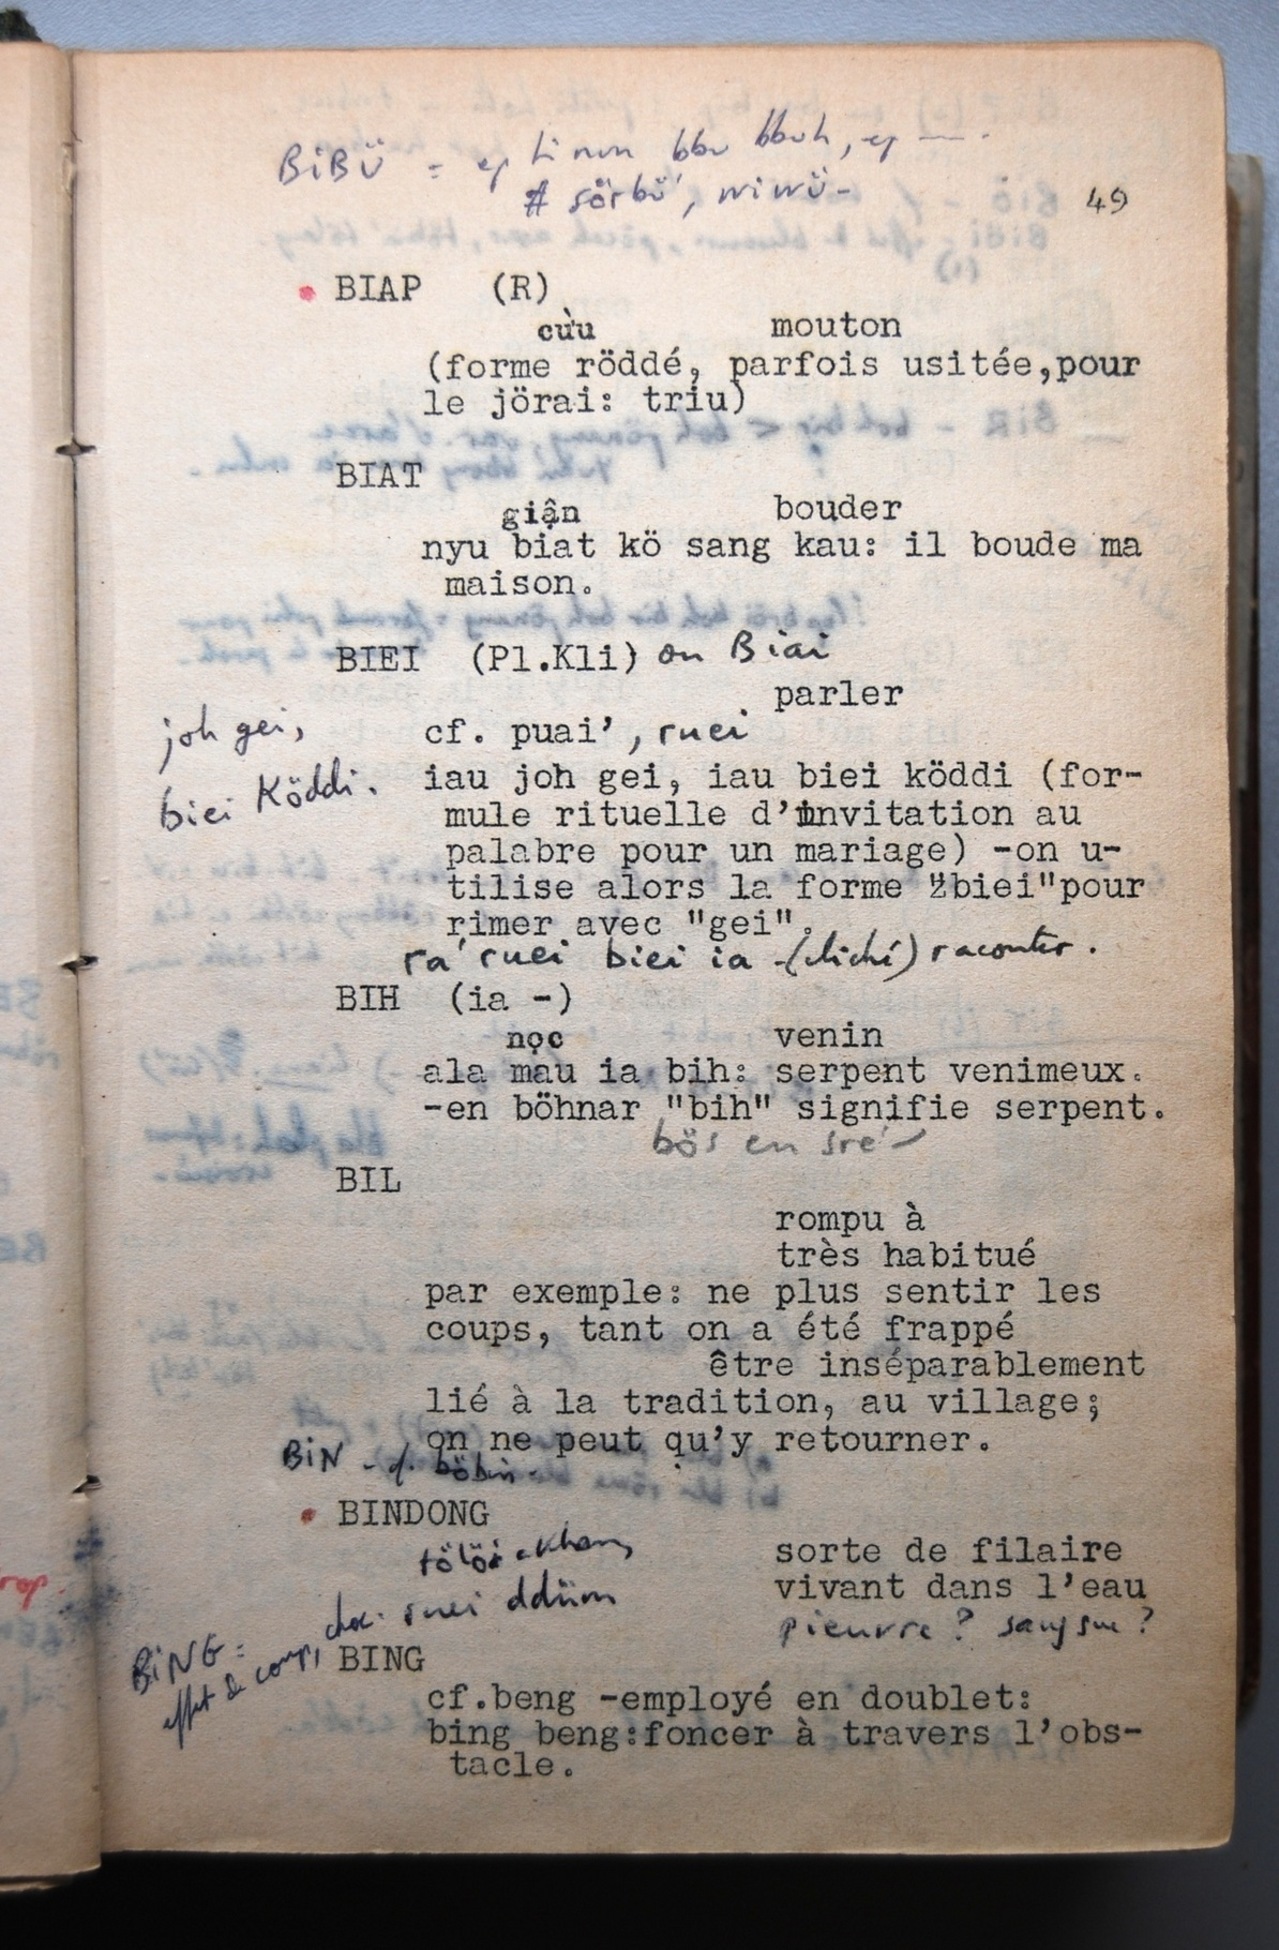 BiBÜ = bbu bbuh,
# sörbü', wiwü-
49
BIAP (R)
cừu mouton
(forme röddé, parfois usitée,pour
le jörai: triu)
BIAT
giận bouder
nyu biat kö sang kau: il boude ma
maison.
BIEI (Pl.Kli) ou Biai
parler
joh gei,
cf. puai', ruei
biei Köddi.
iau joh gei, iau biei köddi (for-
mule rituelle d'invitation au
palabre pour un mariage) -on u-
tilise alors la forme "biei"pour
rimer avec "gei".
ra' ruei biei ia -(cliché) raconter.
BIH (ia -)
nọc venin
ala mau ia bih: serpent venimeux.
-en böhnar "bih" signifie serpent.
bös en sre'
BIL
rompu à
très habitué
par exemple: ne plus sentir les
coups, tant on a été frappé
être inséparablement
lié à la tradition, au village;
on ne peut qu'y retourner.
BiN - cf. böbin.
BINDONG
sorte de filaire
vivant dans l'eau
ddüm
pieuvre ? sangsue ?
BiNG =
effet de coup, choc.
BING
cf.beng -employé en doublet:
bing beng:foncer à travers l'obs-
tacle.